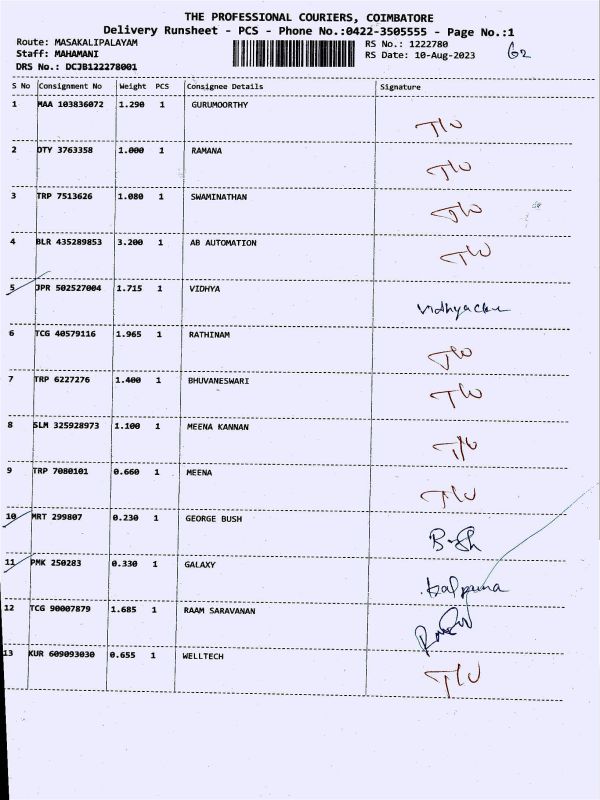 THE PROFESSIONAL COURIERS, COIMBATORE
Delivery Runsheet - PCS - Phone No.:0422-3505555 - Page No.:1
Route: MASAKALIPALAYAM RS No.: 1222780
Staff: MAHAMANI RS Date: 10-Aug-2023
DRS No.: DCJB122278001
S No Consignment No Weight PCS Consignee Details Signature
1 MAA 103836072 1.290 1 GURUMOORTHY
T/W
2 DTY 3763358 1.000 1 RAMANA
T/W
3 TRP 7513626 1.080 1 SWAMINATHAN
T/W
4 BLR 435289853 3.200 1 AB AUTOMATION
T/W
5 JPR 502527004 1.715 1 VIDHYA
6 TCG 40579116 1.965 1 RATHINAM
T/W
7 TRP 6227276 1.400 1 BHUVANESWARI
T/W
8 SLM 325928973 1.100 1 MEENA KANNAN
T/W
9 TRP 7080101 0.660 1 MEENA
T/W
10 MRT 299807 0.230 1 GEORGE BUSH
11 PMK 250283 0.330 1 GALAXY
kalpana
12 TCG 90007879 1.685 1 RAAM SARAVANAN
13 KUR 609093030 0.655 1 WELLTECH
T/W